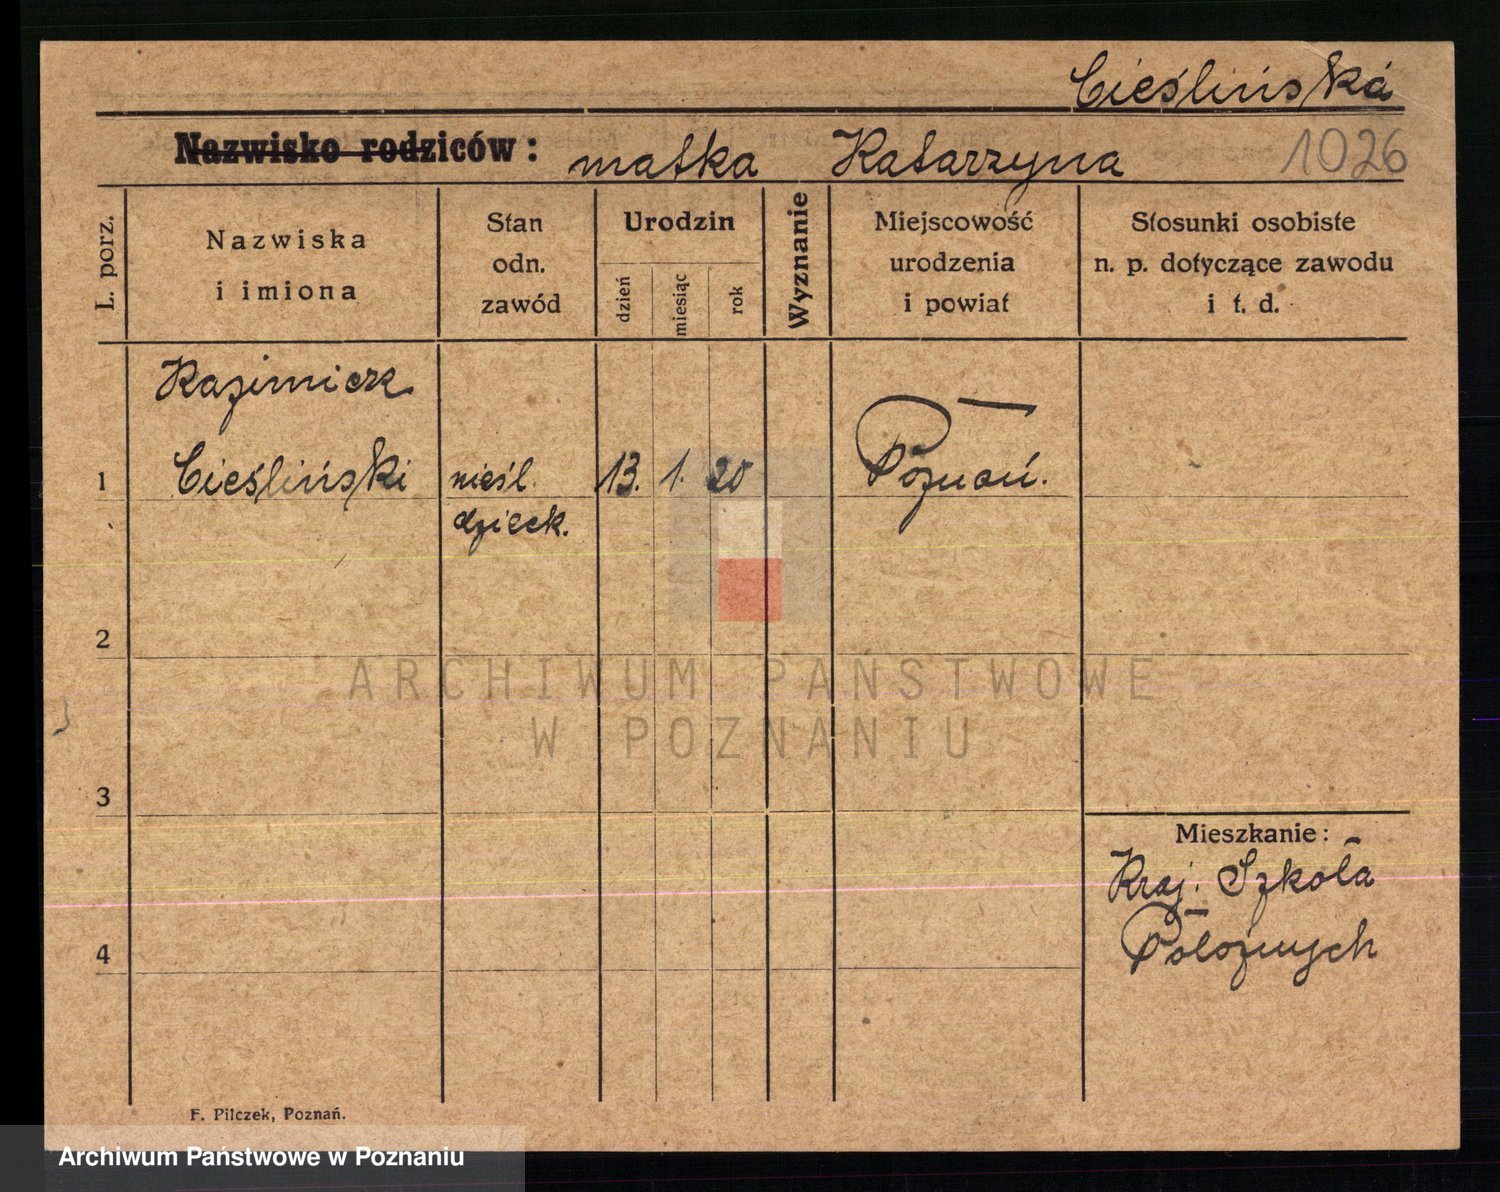 Cieślińska
Nazwisko rodziców: matka Katarzyna 1026
L. porz.
Nazwiska
i imiona
Stan
odn.
zawód
Urodzin
dzień
miesiąc
rok
Wyznanie
Miejscowość
urodzenia
i powiat
Stosunki osobiste
n. p. dotyczące zawodu
i t. d.
Kazimierz
1 Cieśliński nieśl. 13. 1. 20 Poznań.
dzieck.
2
ARCHIWUM PAŃSTWOWE
W POZNANIU
3
Mieszkanie:
Kraj. Szkoła
4 Położnych
F. Pilczek, Poznań.
Archiwum Państwowe w Poznaniu